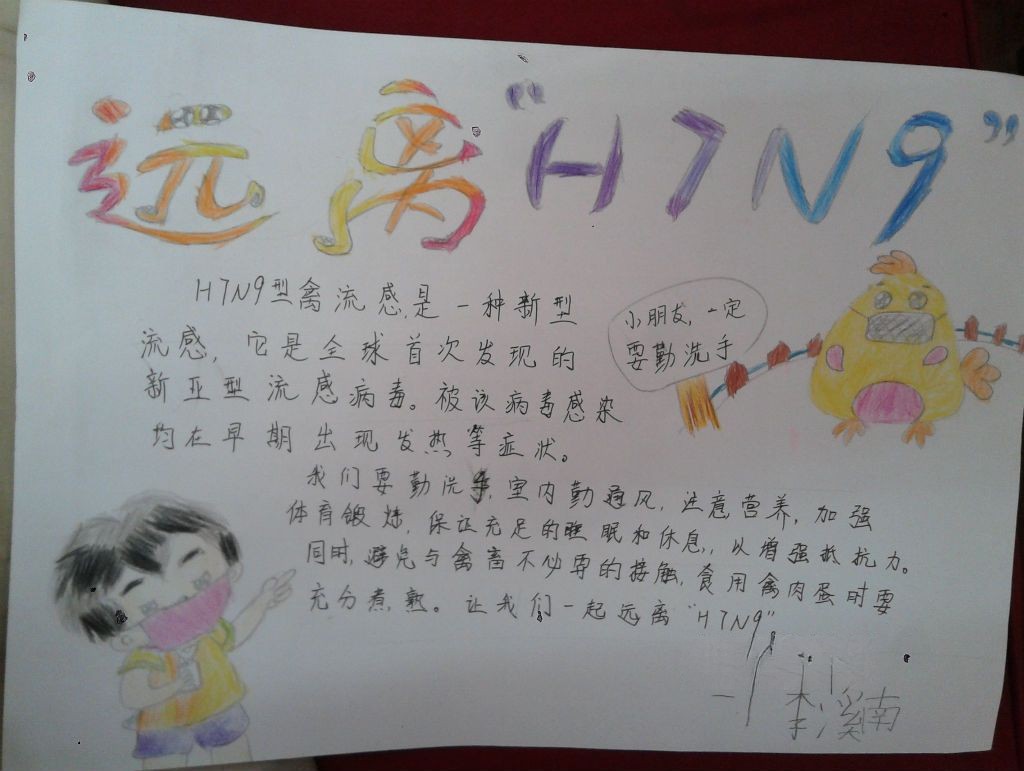 远离“H7N9”
H7N9型禽流感,是一种新型
流感,它是全球首次发现的
新亚型流感病毒。被该病毒感染
均在早期出现发热等症状。
小朋友,一定
要勤洗手
我们要勤洗手,室内勤通风,注意营养,加强
体育锻炼,保证充足的睡眠和休息,以增强抵抗力。
同时,避免与禽畜不必要的接触,食用禽肉蛋时要
充分煮,熟。让我们一起远离“H7N9”
溪南